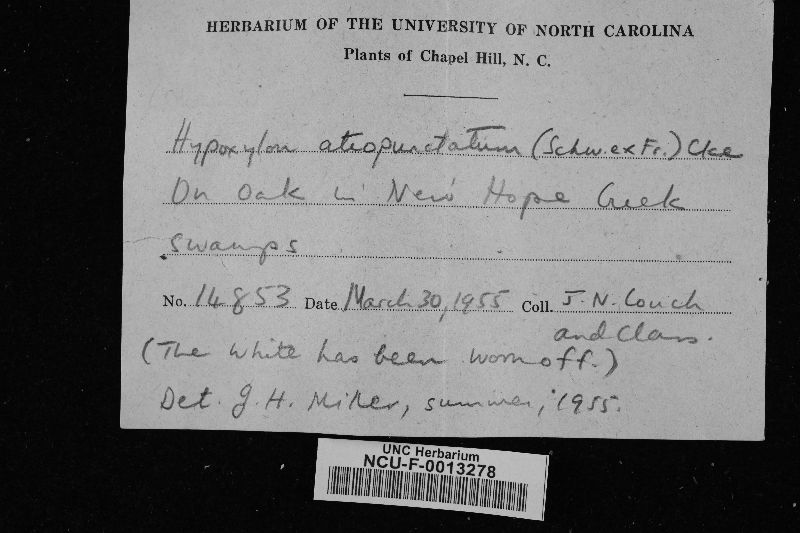 HERBARIUM OF THE UNIVERSITY OF NORTH CAROLINA
Plants of Chapel Hill, N. C.
Hypoxylon atropunctatum (Schw. ex Fr.) Cke
On oak in New Hope Creek
swamps
No. 14853 Date March 30, 1955 Coll. J. N. Couch
and Class.
(The white has been worn off.)
Det. J. H. Miller, summer, 1955.
UNC Herbarium
NCU-F-0013278